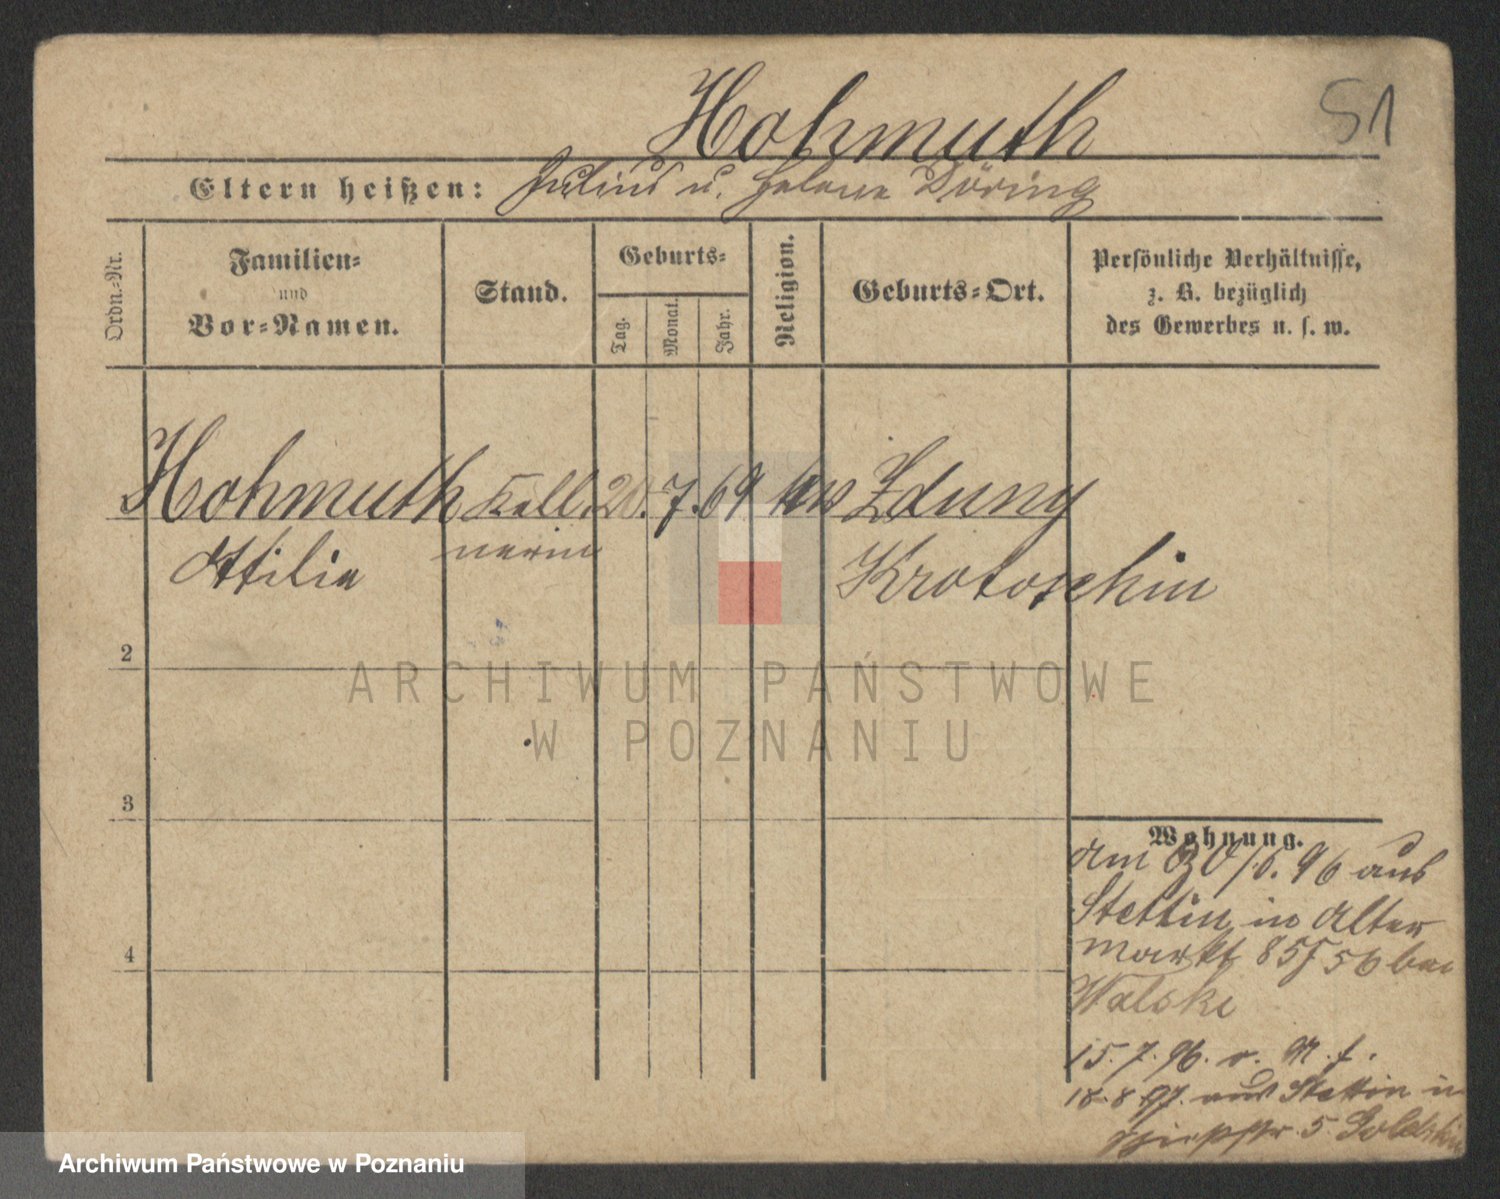 51
Hohmuth
Eltern heißen: Julius u. Helene Döring
Ordn.-Nr.
Familien-
und
Vor-Namen.
Stand.
Geburts-
Tag.
Monat.
Jahr.
Religion.
Geburts-Ort.
Persönliche Verhältnisse,
z. B. bezüglich
des Gewerbes u. s. w.
Hohmuth Kell 20. 7. 69 Zduny
Ottilie nerin Krotoschin
2
ARCHIWUM PAŃSTWOWE
W POZNANIU
3
Wohnung.
am 30/6. 96 aus
Stettin in Alter
markt 85 bei
Walske
4
15. 7. 96. v. M. f.
18. 8. 97. aus Stettin in
5
Archiwum Państwowe w Poznaniu